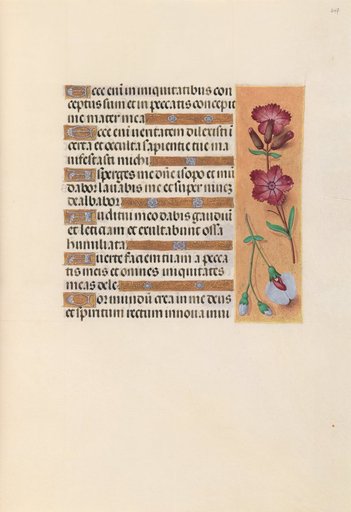 Ecce enī in iniquitatibus con
ceptus sum et in peccatis concepit
me mater mea
Ecce enī ueritatem dilexisti ī
certa et occulta sapientie tue ma
nifestasti michi
Asperges me dn̄e isopo et mū
dabor lauabis me et super niuē
dealbabor
Auditui meo dabis gaudiū
et leticiam et exultabunt ossa
humiliata
Auerte faciem tuam a pecca
tis meis et omnes iniquitates
meas dele
Cor mundū crea in me deus
et spiritum rectum innoua in ui